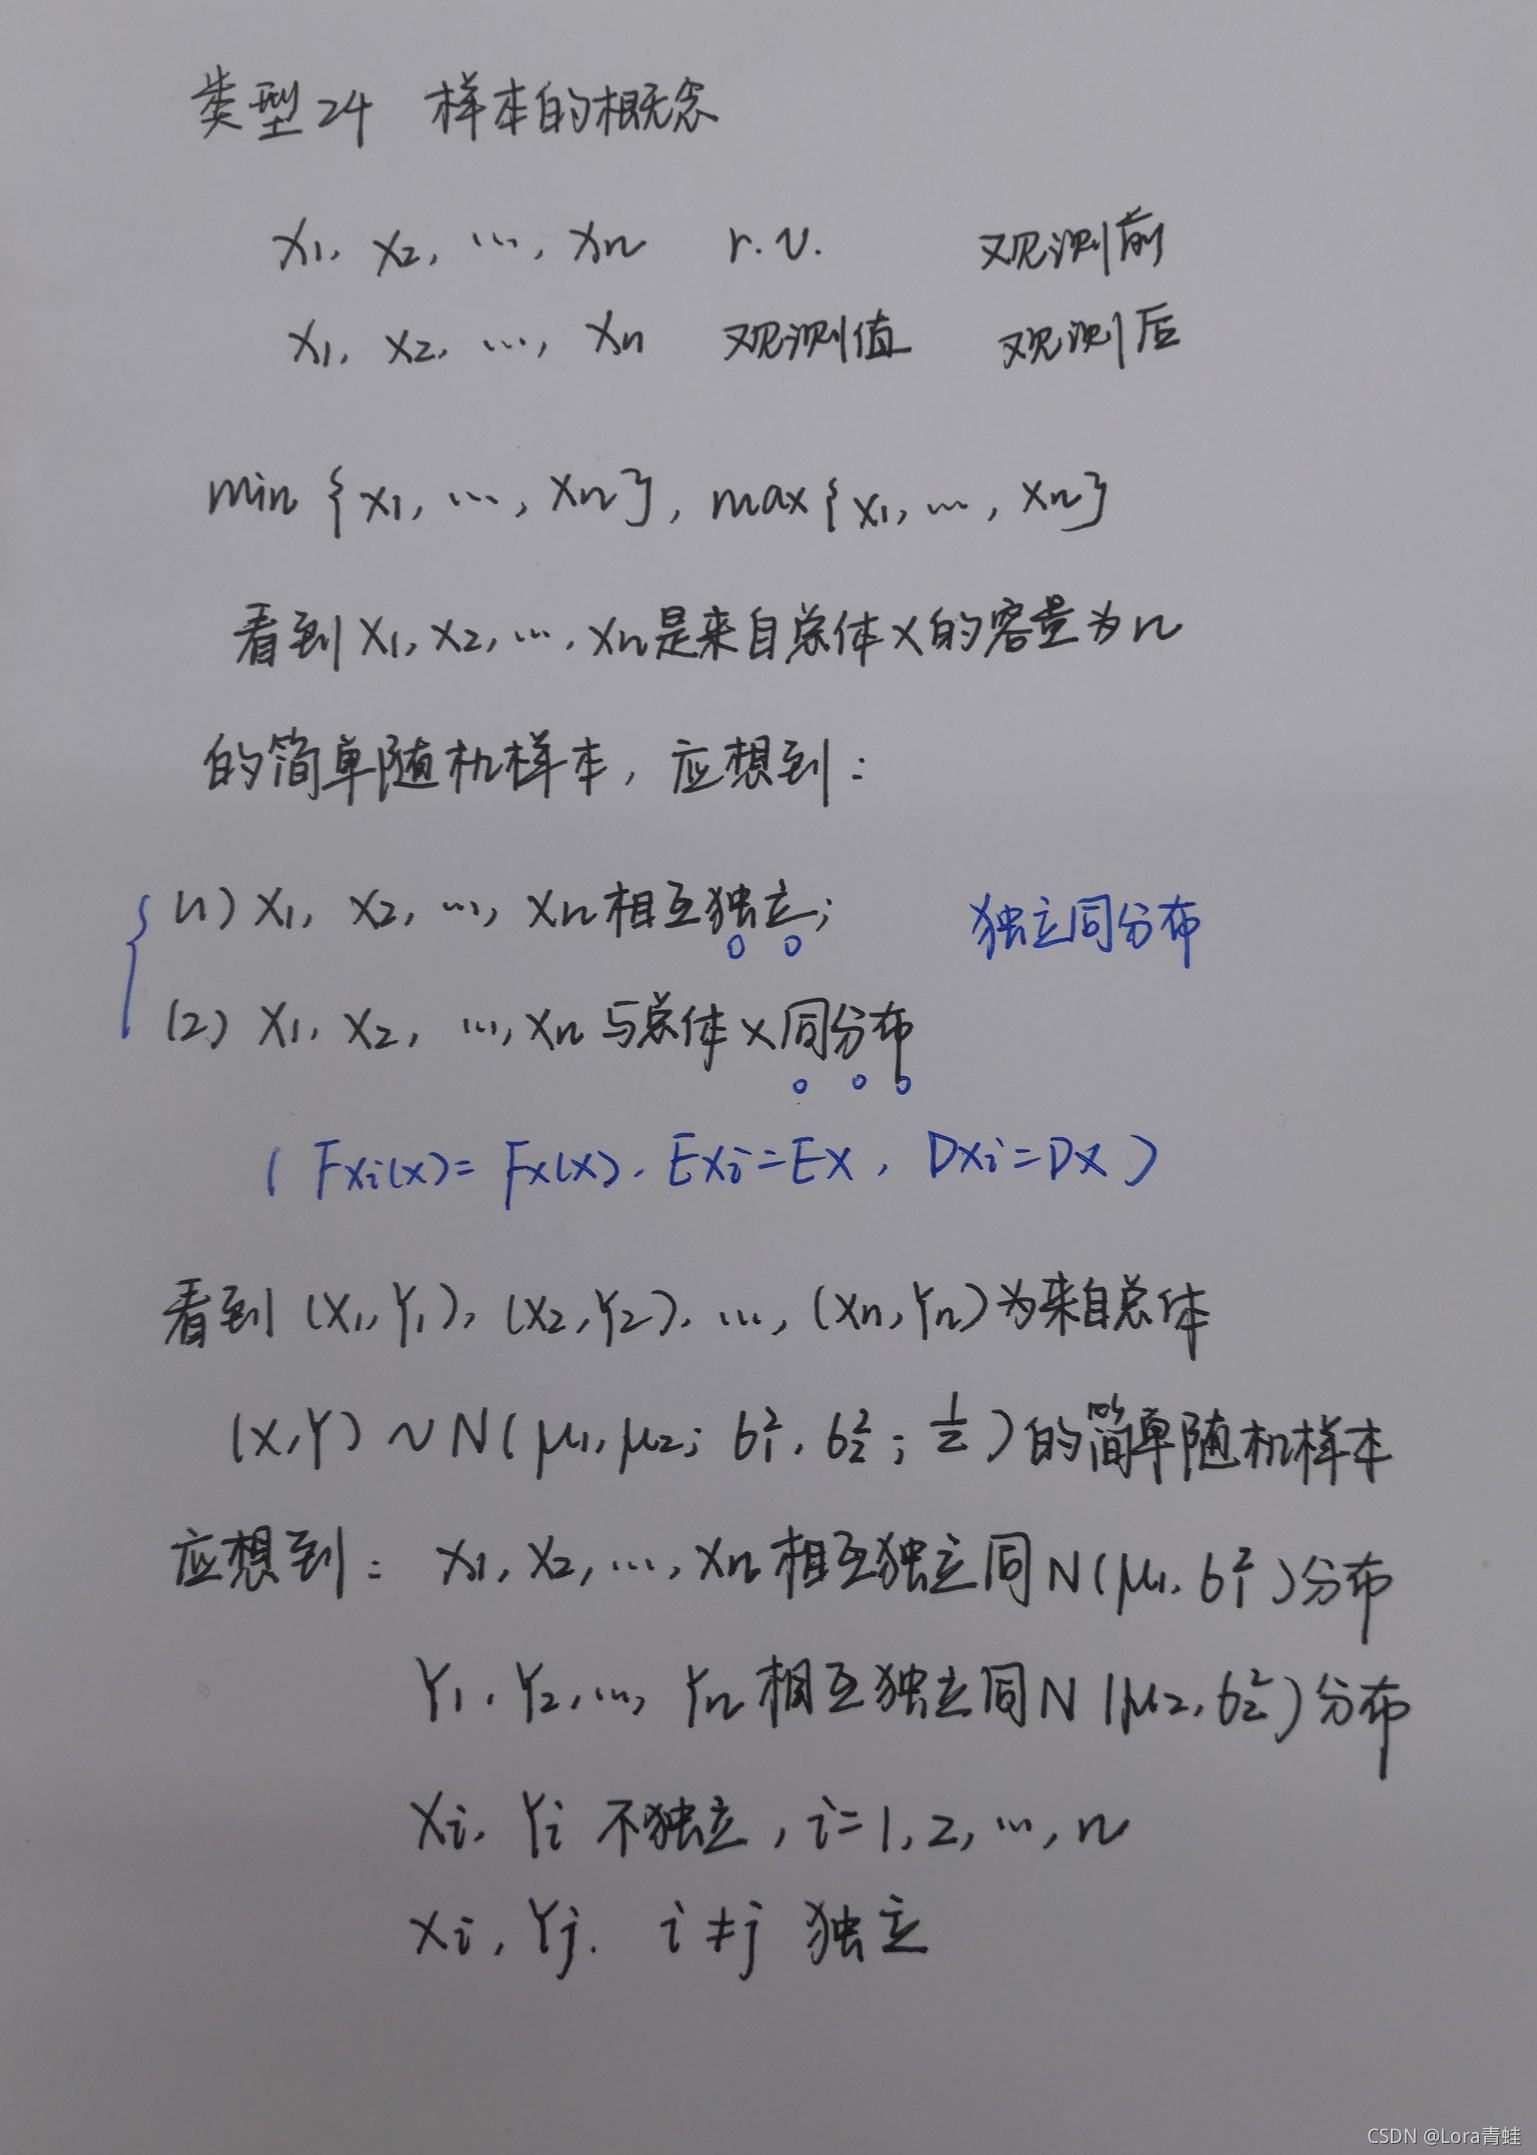 类型24 样本的概念
X1, X2, …, Xn r.v. 观测前
x1, x2, …, xn 观测值 观测后
min {X1, …, Xn}, max {X1, …, Xn}
看到 X1, X2, …, Xn是来自总体X的容量为n
的简单随机样本, 应想到:
(1) X1, X2, …, Xn 相互独立; 独立同分布
(2) X1, X2, …, Xn 与总体X同分布
( FXi(x) = FX(x), EXi = EX, DXi = DX )
看到 (X1,Y1), (X2,Y2), …, (Xn,Yn) 为来自总体
(X,Y) ~ N(μ1, μ2; σ1², σ2²; 1/2) 的简单随机样本
应想到: X1, X2, …, Xn 相互独立同N(μ1, σ1²)分布
Y1, Y2, …, Yn 相互独立同N(μ2, σ2²)分布
Xi, Yi 不独立, i=1, 2, …, n
Xi, Yj. i≠j 独立
CSDN @Lora青蛙